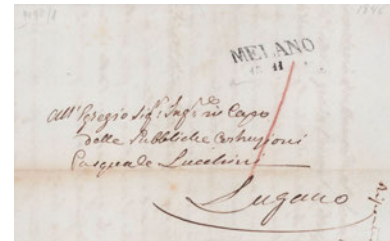 1846
MELANO
11
All'Egregio Sig.r Ing.re in Capo
delle Pubbliche Costruzioni
Pasquale Lucchini
Lugano